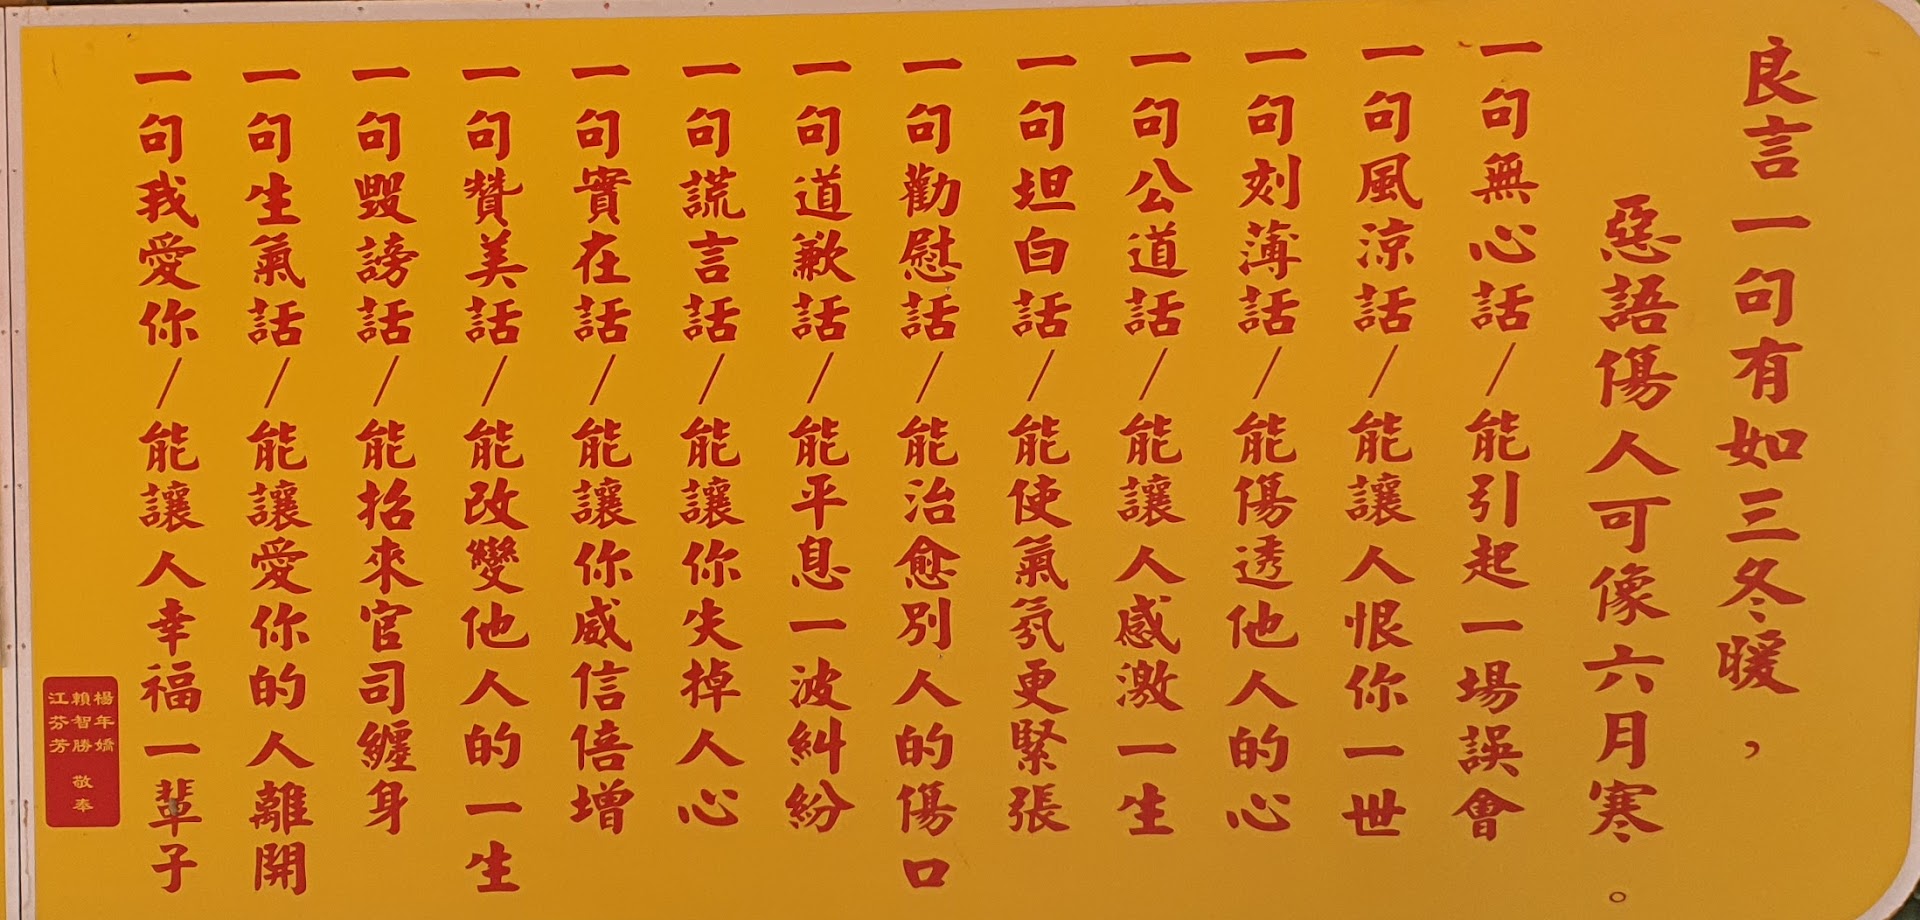 良言一句有如三冬暖，
惡語傷人可像六月寒。
一句無心話/能引起一場誤會
一句風涼話/能讓人恨你一世
一句刻薄話/能傷透他人的心
一句公道話/能讓人感激一生
一句坦白話/能使氣氛更緊張
一句勸慰話/能治愈別人的傷口
一句道歉話/能平息一波糾紛
一句謊言話/能讓你失掉人心
一句實在話/能讓你威信倍增
一句贊美話/能改變他人的一生
一句毀謗話/能招來官司纏身
一句生氣話/能讓愛你的人離開
一句我愛你/能讓人幸福一輩子
楊年嬌
賴智勝 敬奉
江芬芳